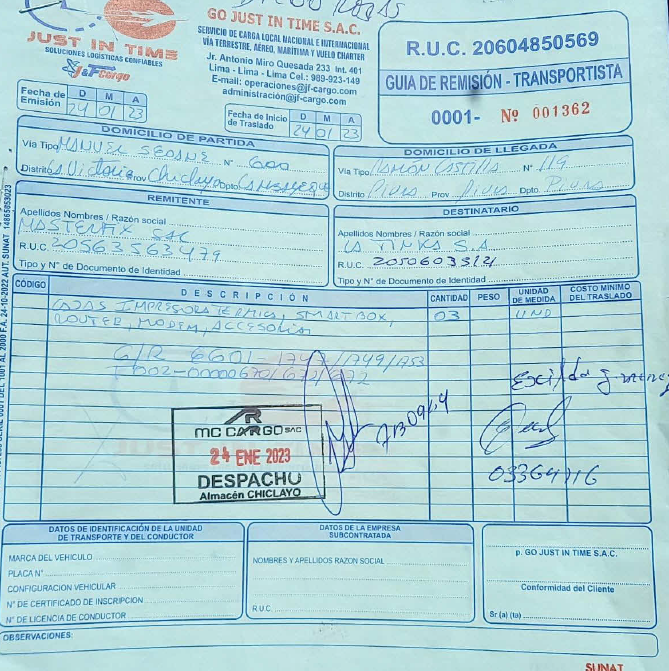 JUST IN TIME
SOLUCIONES LOGÍSTICAS CONFIABLES
J&F Cargo
GO JUST IN TIME S.A.C.
SERVICIO DE CARGA LOCAL NACIONAL E INTERNACIONAL
VÍA TERRESTRE, AÉREO, MARÍTIMA Y VUELO CHARTER
Jr. Antonio Miro Quesada 233 Int. 401
Lima - Lima - Lima Cel.: 989-923-149
E-mail: operaciones@jf-cargo.com
administración@jf-cargo.com
R.U.C. 20604850569
GUIA DE REMISIÓN - TRANSPORTISTA
0001- Nº 001362
Fecha de Emisión D M A
24 01 23
Fecha de Inicio de Traslado D M A
24 01 23
DOMICILIO DE PARTIDA
Vía Tipo MANUEL SEOANE N° 600
Distrito La Victoria Prov Chiclayo Dpto LAMBAYEQUE
DOMICILIO DE LLEGADA
Vía Tipo RAMÓN CASTILLA N° 119
Distrito PIURA Prov. PIURA Dpto PIURA
REMITENTE
Apellidos Nombres / Razón social
MASTERFIX SAC
R.U.C. 20563563479
Tipo y N° de Documento de Identidad
DESTINATARIO
Apellidos Nombres / Razón social
LA TINKA S.A
R.U.C.
Tipo y N° de Documento de Identidad
CÓDIGO DESCRIPCIÓN CANTIDAD PESO UNIDAD DE MEDIDA COSTO MÍNIMO DEL TRASLADO
CAJAS IMPRESORA TERMICA, SMARTBOX, 03 UND
ROUTER, MODEM, ACCESORIOS
G/R 6601-1747/1749/1753
MC CARGO SAC
24 ENE 2023
DESPACHO
Almacén CHICLAYO
DATOS DE IDENTIFICACIÓN DE LA UNIDAD DE TRANSPORTE Y DEL CONDUCTOR
MARCA DEL VEHICULO
PLACA N°
CONFIGURACION VEHICULAR
N° DE CERTIFICADO DE INSCRIPCION
N° DE LICENCIA DE CONDUCTOR
DATOS DE LA EMPRESA SUBCONTRATADA
NOMBRES Y APELLIDOS RAZON SOCIAL
R.U.C.
p. GO JUST IN TIME S.A.C.
Conformidad del Cliente
Sr (a) (ta)
OBSERVACIONES:
SUNAT